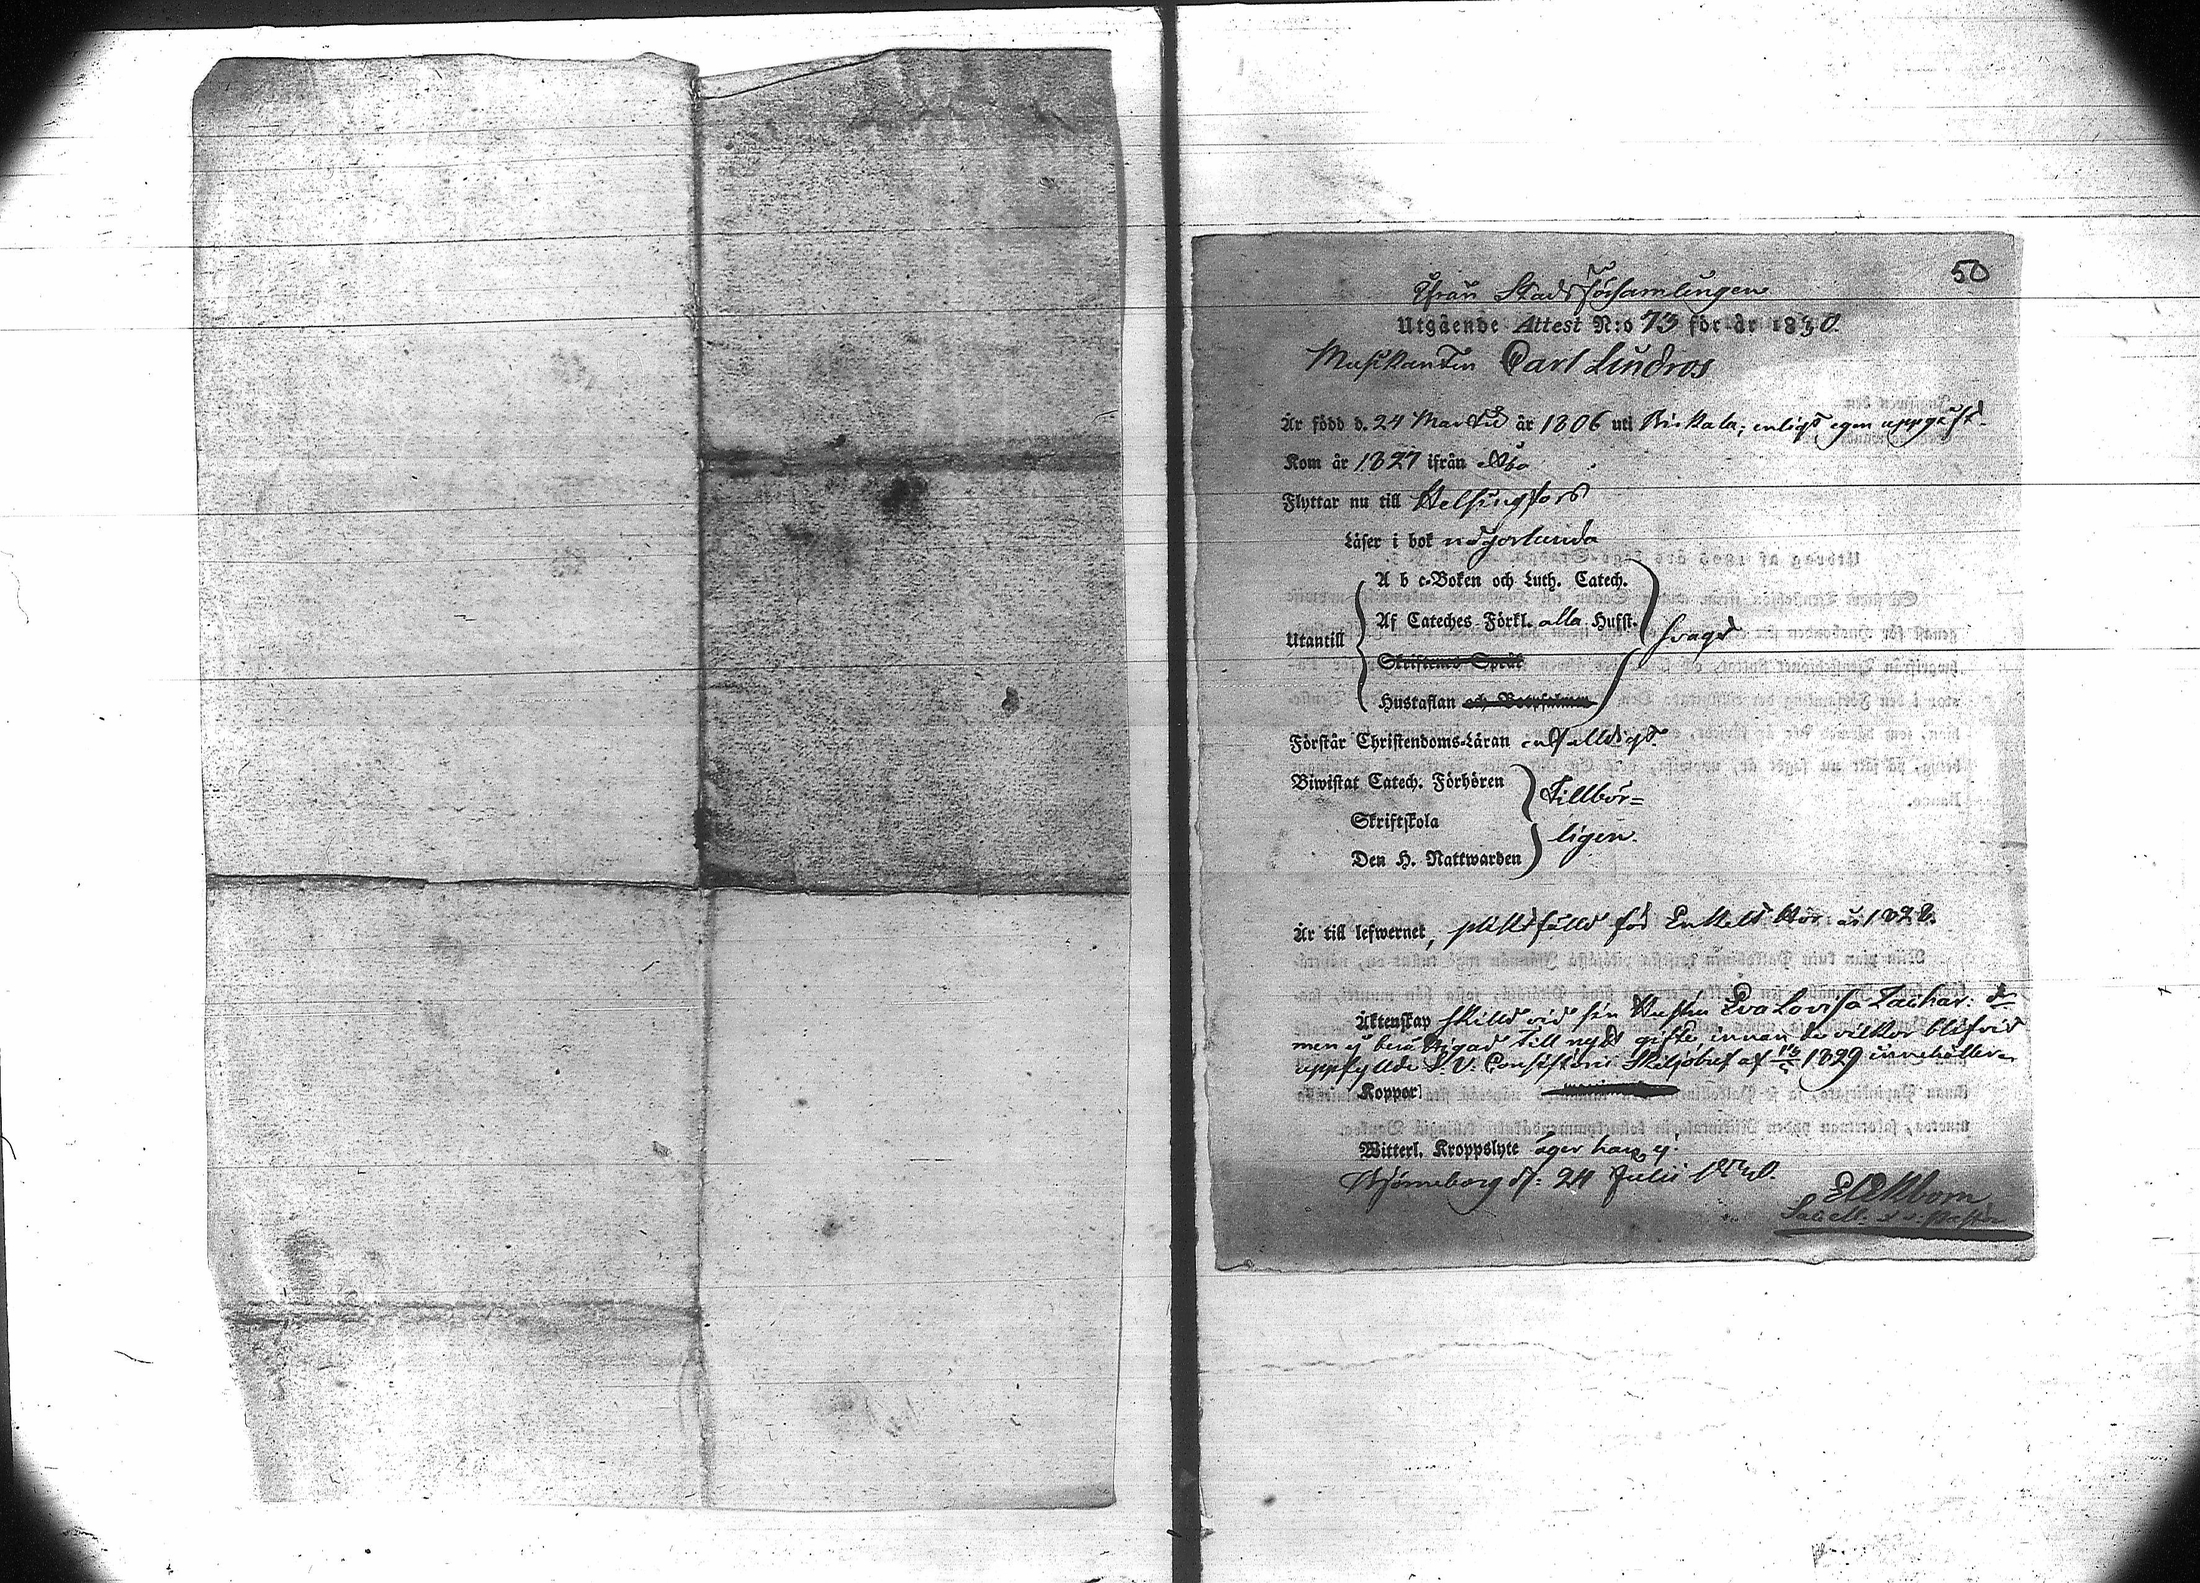 50
Ifrån Stads Församlingen
Utgående Attest N:o 73 för år 1830.
Musikanten Carl Lindros
Är född d. 24 Martii år 1806 uti Birkala, enligt egen uppgift.
Kom år 1827 ifrån Åbo
Flyttar nu till Helsingfors
Läser i bok någorlunda
A b c-Boken och Luth. Catech.
Af Cateches Förkl. alla Hufst.
Utantill svagt
Skriftenes Språk
Hustaflan och Botpsalmen
Förstår Christendoms-Läran enfalldigt.
Biwistat Catech. Förhören
Skriftskola
Den H. Nattwarden
tillbör=
ligen.
Är till lefwernet, pliktfälld för Enkelt Hor år 1828.
Äktenskap skilld vid sin Hustru Eva Lovisa Zachar: dr
men ej berättigad till nytt gifte innan de vilkor blifvid
uppfyllde S. V. Consistorii Skiljobref af 1829 innehåller
Koppor
Witterl. Kroppslyte äger han ej.
Björneborg d: 24 Julii 1830.